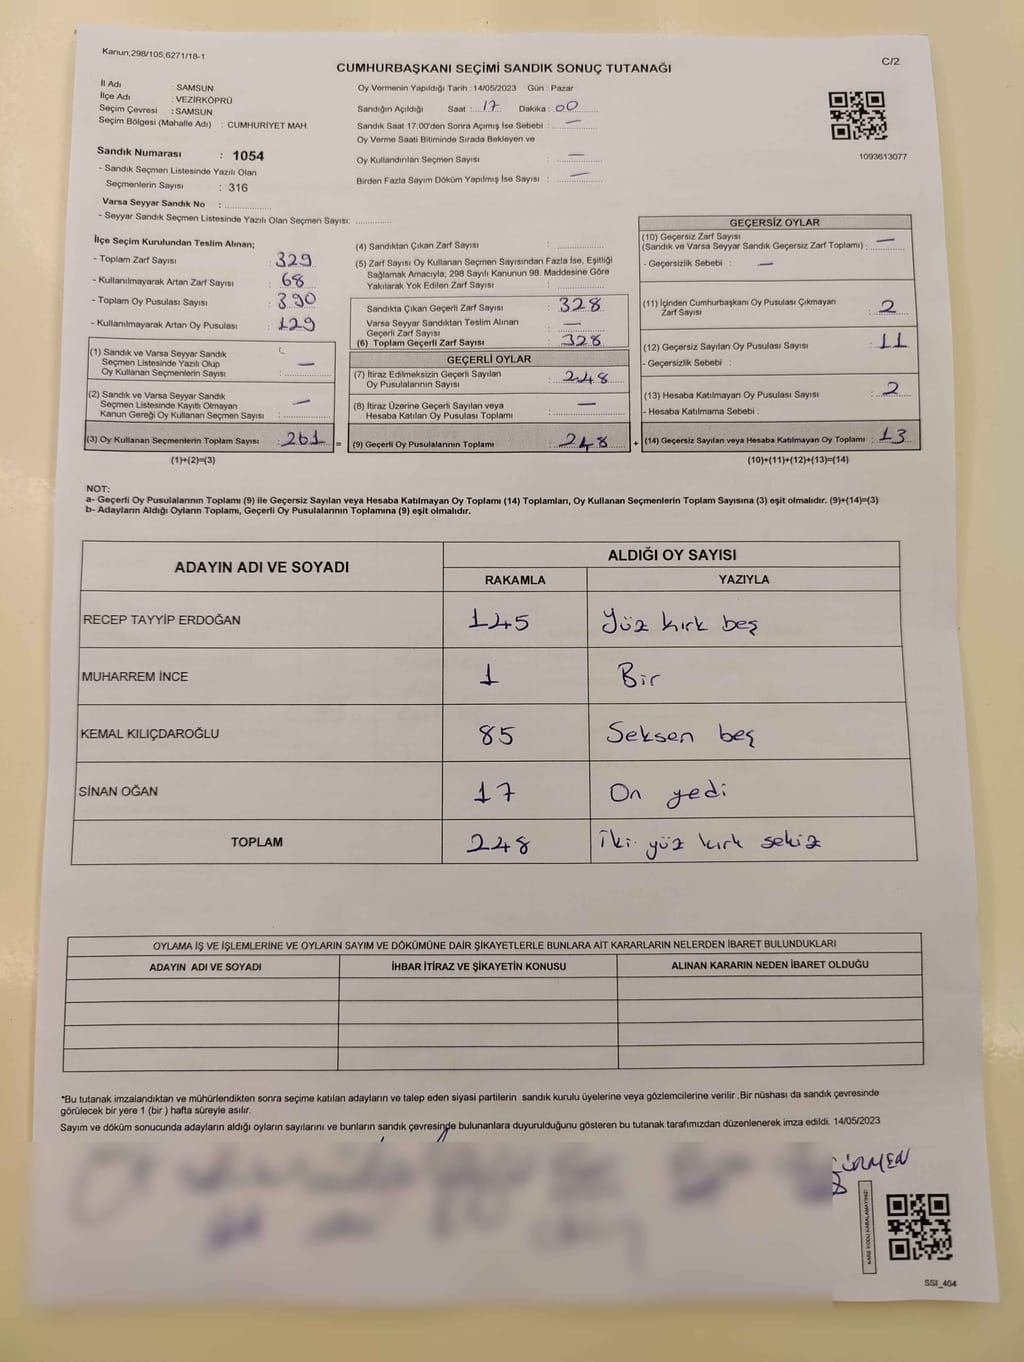 Kanun;298/105;6271/18-1
C/2
CUMHURBAŞKANI SEÇİMİ SANDIK SONUÇ TUTANAĞI
İl Adı : SAMSUN
İlçe Adı : VEZİRKÖPRÜ
Seçim Çevresi : SAMSUN
Seçim Bölgesi (Mahalle Adı) : CUMHURİYET MAH.
Sandık Numarası : 1054
- Sandık Seçmen Listesinde Yazılı Olan
Seçmenlerin Sayısı : 316
Varsa Seyyar Sandık No :
- Seyyar Sandık Seçmen Listesinde Yazılı Olan Seçmen Sayısı:
Oy Vermenin Yapıldığı Tarih : 14/05/2023 Gün : Pazar
Sandığın Açıldığı Saat : 17 Dakika : 00
Sandık Saat 17:00'den Sonra Açımış İse Sebebi : —
Oy Verme Saati Bitiminde Sırada Bekleyen ve
Oy Kullandırılan Seçmen Sayısı : —
Birden Fazla Sayım Döküm Yapılmış İse Sayısı : —
1093613077
İlçe Seçim Kurulundan Teslim Alınan;
- Toplam Zarf Sayısı : 329
- Kullanılmayarak Artan Zarf Sayısı : 68
- Toplam Oy Pusulası Sayısı : 390
- Kullanılmayarak Artan Oy Pusulası : 129
(1) Sandık ve Varsa Seyyar Sandık
Seçmen Listesinde Yazılı Olup
Oy Kullanan Seçmenlerin Sayısı : —
(2) Sandık ve Varsa Seyyar Sandık
Seçmen Listesinde Kayıtlı Olmayan
Kanun Gereği Oy Kullanan Seçmen Sayısı : —
(3) Oy Kullanan Seçmenlerin Toplam Sayısı : 261 =
(1)+(2)=(3)
(4) Sandıktan Çıkan Zarf Sayısı :
(5) Zarf Sayısı Oy Kullanan Seçmen Sayısından Fazla İse, Eşitliği
Sağlamak Amacıyla; 298 Sayılı Kanunun 98. Maddesine Göre
Yakılarak Yok Edilen Zarf Sayısı :
Sandıkta Çıkan Geçerli Zarf Sayısı : 328
Varsa Seyyar Sandıktan Teslim Alınan
Geçerli Zarf Sayısı : —
(6) Toplam Geçerli Zarf Sayısı : 328
GEÇERLİ OYLAR
(7) İtiraz Edilmeksizin Geçerli Sayılan
Oy Pusulalarının Sayısı : 248
(8) İtiraz Üzerine Geçerli Sayılan veya
Hesaba Katılan Oy Pusulası Toplamı : —
(9) Geçerli Oy Pusulalarının Toplamı : 248 +
GEÇERSİZ OYLAR
(10) Geçersiz Zarf Sayısı
(Sandık ve Varsa Seyyar Sandık Geçersiz Zarf Toplamı) : —
- Geçersizlik Sebebi : —
(11) İçinden Cumhurbaşkanı Oy Pusulası Çıkmayan
Zarf Sayısı : 2
(12) Geçersiz Sayılan Oy Pusulası Sayısı : 11
- Geçersizlik Sebebi :
(13) Hesaba Katılmayan Oy Pusulası Sayısı : 2
- Hesaba Katılmama Sebebi :
(14) Geçersiz Sayılan veya Hesaba Katılmayan Oy Toplamı : 13
(10)+(11)+(12)+(13)=(14)
NOT:
a- Geçerli Oy Pusulalarının Toplamı (9) ile Geçersiz Sayılan veya Hesaba Katılmayan Oy Toplamı (14) Toplamları, Oy Kullanan Seçmenlerin Toplam Sayısına (3) eşit olmalıdır. (9)+(14)=(3)
b- Adayların Aldığı Oyların Toplamı, Geçerli Oy Pusulalarının Toplamına (9) eşit olmalıdır.
ADAYIN ADI VE SOYADI
ALDIĞI OY SAYISI
RAKAMLA YAZIYLA
RECEP TAYYİP ERDOĞAN 145 Yüz kırk beş
MUHARREM İNCE 1 Bir
KEMAL KILIÇDAROĞLU 85 Seksen beş
SİNAN OĞAN 17 On yedi
TOPLAM 248 İki yüz kırk sekiz
OYLAMA İŞ VE İŞLEMLERİNE VE OYLARIN SAYIM VE DÖKÜMÜNE DAİR ŞİKAYETLERLE BUNLARA AİT KARARLARIN NELERDEN İBARET BULUNDUKLARI
ADAYIN ADI VE SOYADI İHBAR İTİRAZ VE ŞİKAYETİN KONUSU ALINAN KARARIN NEDEN İBARET OLDUĞU
*Bu tutanak imzalandıktan ve mühürlendikten sonra seçime katılan adayların ve talep eden siyasi partilerin sandık kurulu üyelerine veya gözlemcilerine verilir .Bir nüshası da sandık çevresinde
görülecek bir yere 1 (bir ) hafta süreyle asılır.
Sayım ve döküm sonucunda adayların aldığı oyların sayılarını ve bunların sandık çevresinde bulunanlara duyurulduğunu gösteren bu tutanak tarafımızdan düzenlenerek imza edildi. 14/05/2023
KARE KODU KARALAMAYINIZ!
SSI_404